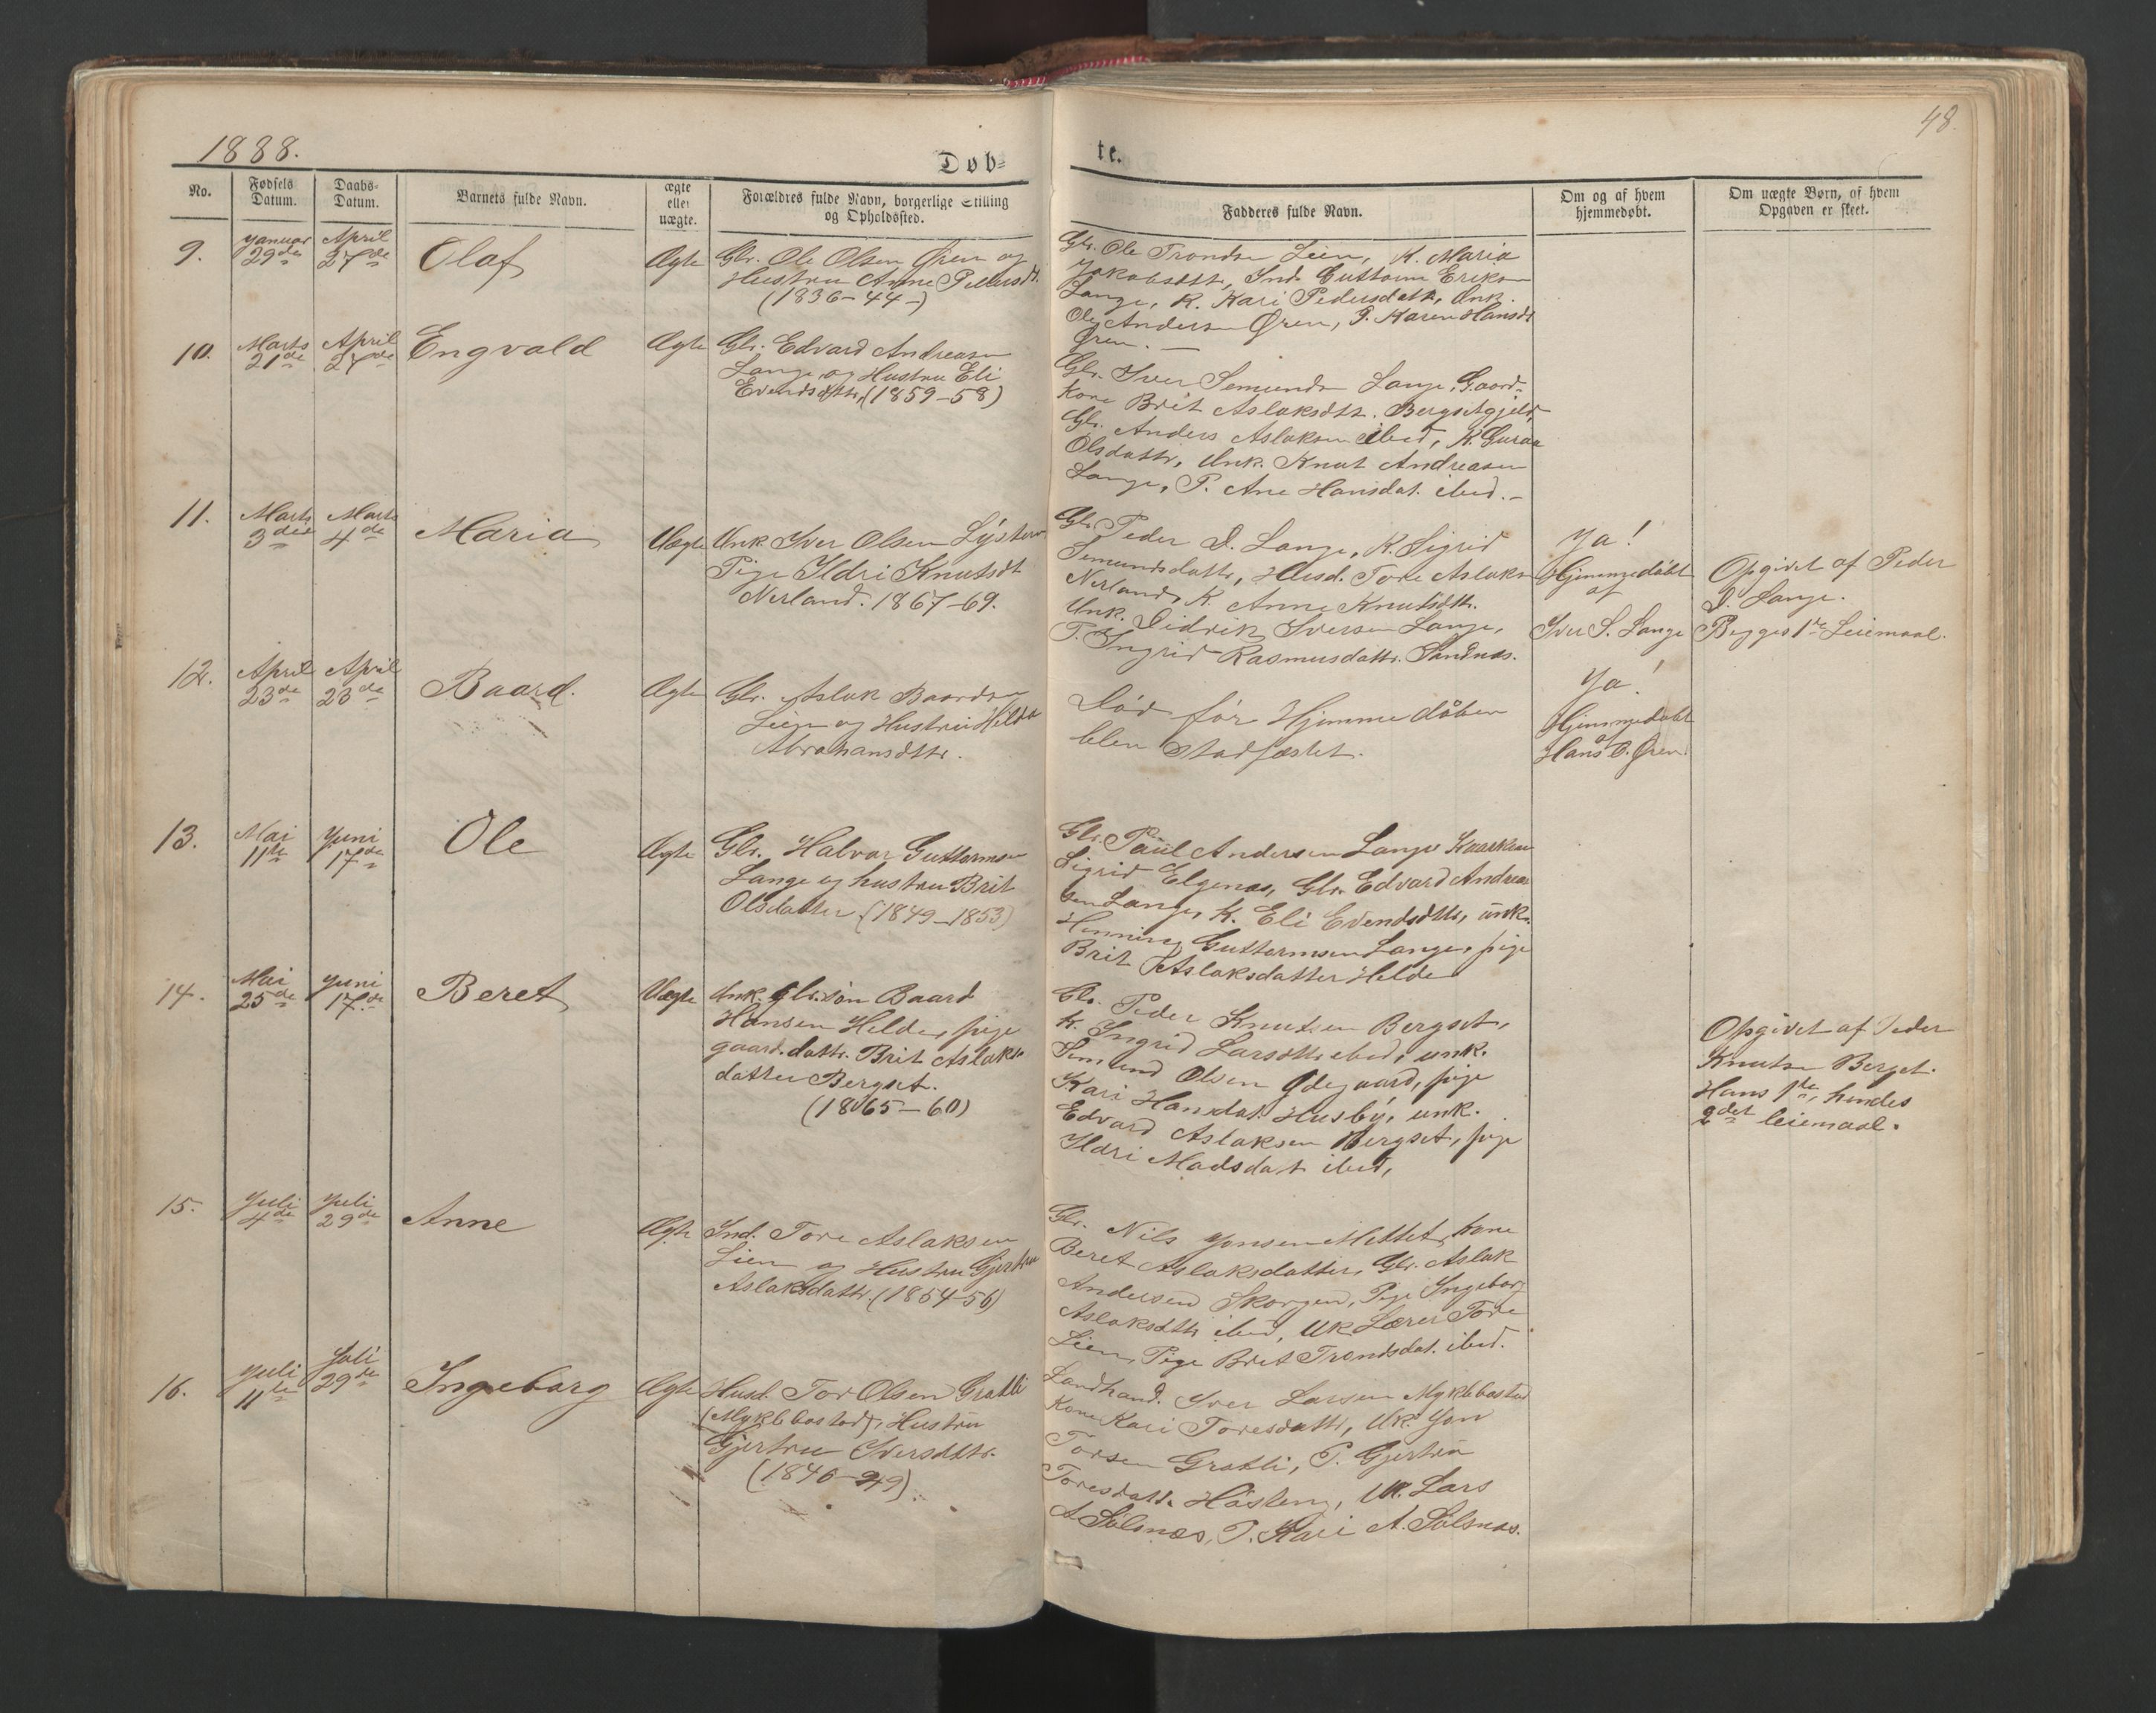 1888.
48.
Døb=
te.
No.
Fødsels Datum.
Daabs- Datum.
Barnets fulde Navn.
ægte eller uægte.
Forældres fulde Navn, borgerlige Stilling og Opholdssted.
Fadderes fulde Navn.
Om og af hvem hjemmedøbt.
Om uægte Børn, af hvem Opgaven er skeet.
9.
Januar 29de
April 27de
Olaf
Ægte
Gbr. Ole Olsen Øren og
Hustru Anne Pedersdt.
(1836-44-)
Gbr. Ole Trondsen Lien, K. Maria
Jakobsdtt., Ind. Guttorm Eriksen
Lange, K. Kari Pedersdatt., Unk.
Ole Andersen Øren, P. Karen Hansdt
Øren. —
10.
Marts 21de
April 27de
Engvald
Ægte
Gbr. Edvard Andreasen
Lange og Hustru Eli
Evendsdttr. (1859-58)
Gbr. Iver Semundsn Lange, Gaard-
kone Brit Aslaksdtt. Bergsetgjeld,
Gbr. Anders Aslaksen ibid, K. Guraa
Olsdattr, Unk. Knut Andreasen
Lange, P. Ane Hansdat. ibid. -
11.
Marts 3die
Marts 4de
Maria
Uægte
Unk. Iver Olsen Lyster
Pige Ildri Knutsdt
Nerland. 1867-69.
Gbr. Peder I. Lange, K. Sigrid
Semundsdattr, Husd. Tore Aslaksn
Nerland, K. Anne Knutsdtt.
Unk. Didrik Iversen Lange,
P. Ingrid Rasmusdattr. Sandnes.
Ja!
Hjemmedøbt
af
Iver S. Lange
Opgivet af Peder
I. Lange.
Begges 1ste Leiemaal.
12.
April 23de
April 23de
Baard.
Ægte
Gbr. Aslak Baardsen
Lien og Hustru Hilda
Abrahamsdttr.
Død før Hjemmedåben
blev stadfæstet.
Ja!
Hjemmedøbt
af
Hans B. Øren.
13.
Mai 11te
Juni 17de
Ole
Ægte
Gbr. Halvor Guttormsen
Lange og hustru Brit
Olsdatter (1849-1853)
Gbr. Paul Andersen Lange
Sigrid Elgenæs, Gbr. Edvard Andrea-
sen Lange, K. Eli Evendsdttr, unk.
Henning Guttormsen Lange, pige
Brit Aslaksdatter Helde
14.
Mai 25de
Juni 17de
Beret
Uægte
Unk. gbr.søn Baard
Hansen Helde, pige
gaard.dattr. Brit Aslaks-
datter Bergset.
(1865-60)
Gbr. Peder Knutsen Bergset,
K. Ingrid Larsdttr ibid, unk.
Semund Olsen Ødegaard, pige
Kari Hansdat. Husby, unk.
Edvard Aslaksen Bergset, pige
Ildri Madsdat. ibid,
Opgivet af Peder
Knutsn Bergset.
Hans 1ste, hendes
2det leiemaal.
15.
Juli 4de
Juli 29de
Anne
Ægte
Ind. Tore Aslaksen
Lien og Hustru Gjertru
Aslaksdattr. (1854-56)
Gbr. Nils Jonsen Mittet, Kone
Beret Aslaksdatter, Gbr. Aslak
Andersen Skorgen, Pige Ingeborg
Aslaksdttr ibid, Uk Lærer Tore
Lien, Pige Brit Trondsdat. ibid.
16.
Juli 11te
Juli 29de
Ingeborg
Ægte
Husd. Tor Olsen Grotli
(Myklebostad), Hustru
Gjertru Iversdttr.
(1846-49).
Landhand. Iver Larsen Myklebostad
Kone Kari Toresdattr, Uk. Jon
Torsen Grotli, P. Gjertru
Toresdatt. , Uk. Lars
A Sølsnæs, P. Kari A. Sølsnæs.